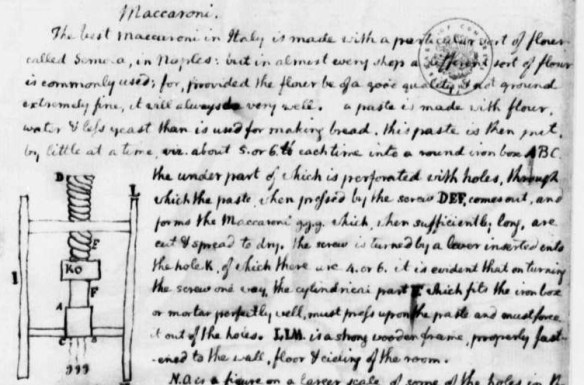 Maccaroni.
The best maccaroni in Italy is made with a particular sort of flour
called Semola, in Naples: but in almost every shop a different sort of flour
is commonly used; for, provided the flour be of a good quality, & not ground
extremely fine, it will always do very well. a paste is made with flour,
water & less yeast than is used for making bread. this paste is then put,
by little at a time, viz. about 5. or 6. ℔ each time into a round iron box ABC.
the under part of which is perforated with holes, through
which the paste, when pressed by the screw DEF, comes out, and
forms the Maccaroni g.g.g. which, when sufficiently long, are
cut & spread to dry. the screw is turned by a lever inserted into
the hole K, of which there are 4. or 6. it is evident that on turning
the screw one way, the cylindrical part F which fits the iron box
or mortar perfectly well, must press upon the paste and must force
it out of the holes. LLM. is a strong wooden frame, properly fast-
-ened to the wall, floor & cieling of the room.
N.O. is a figure on a larger scale, of some of the holes in
D
L
I
E
KO
F
A
C
B
ggg